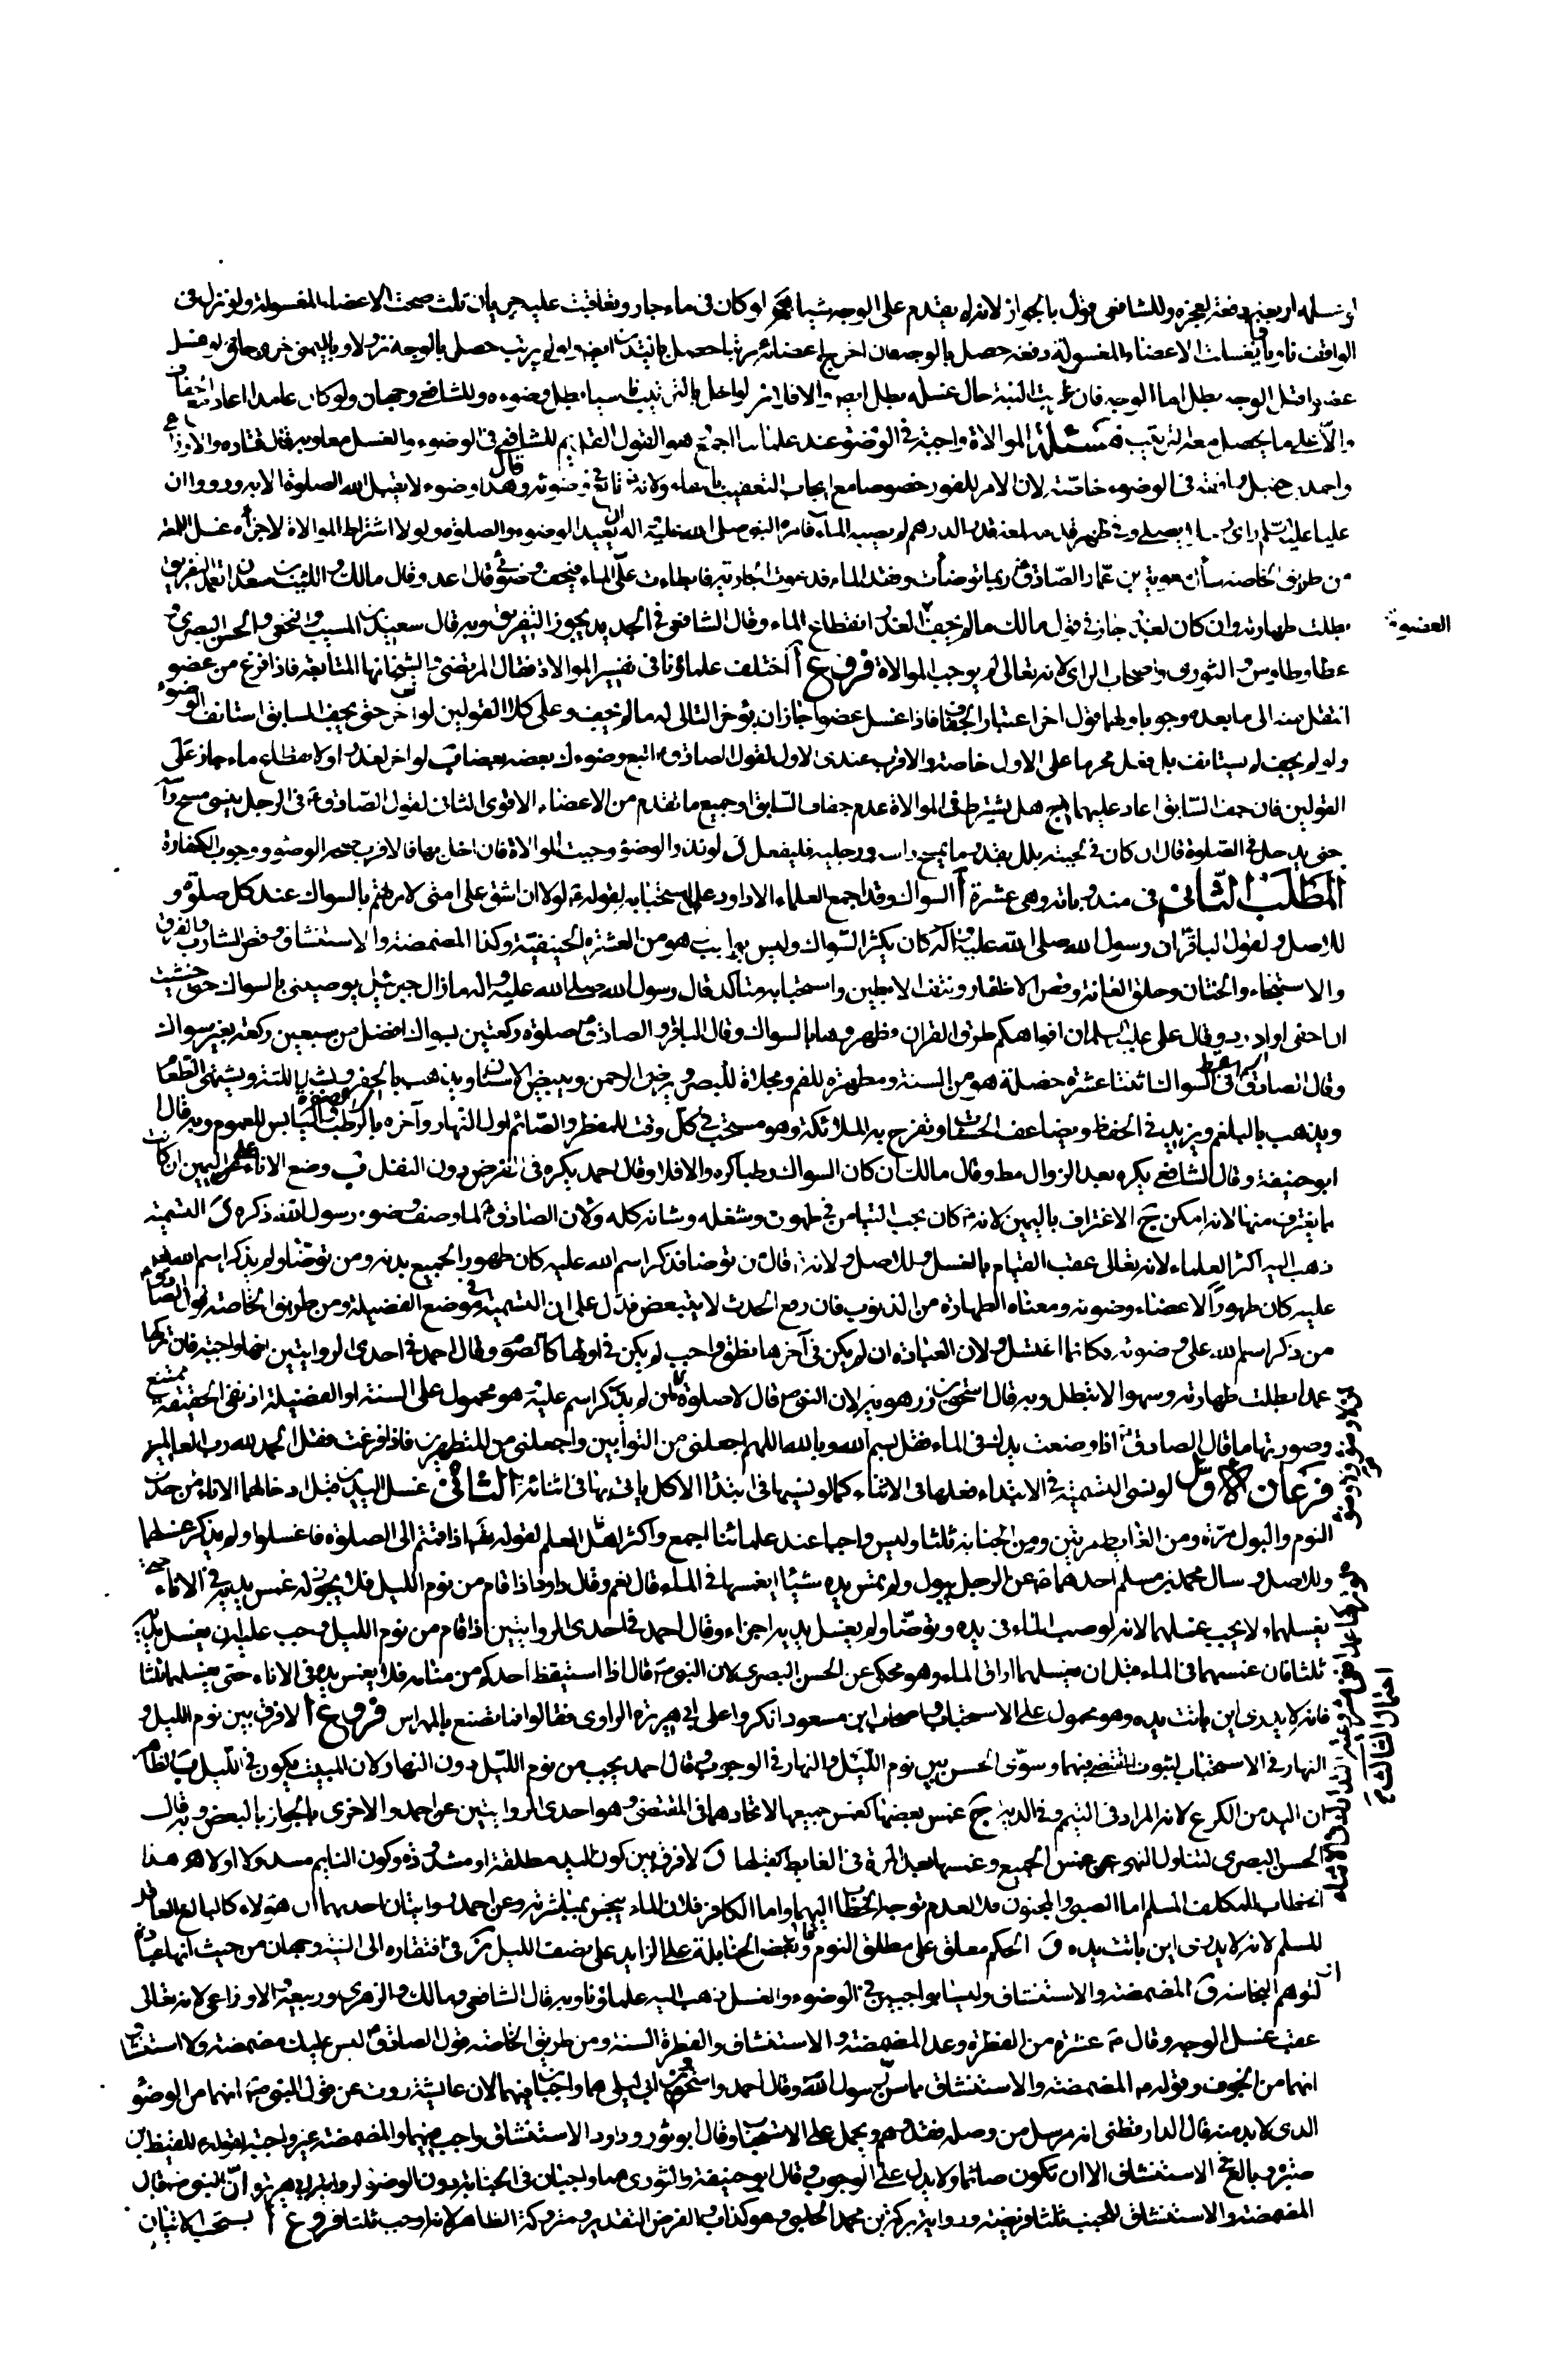 او غسله اربعة دفعة لم يجزه وللشافعي قول بالجواز لانه لم يقدم على الوجه شيئا او كان في ماء جار وتعاقبت عليه جريات ثلث صحت الاعضاء المغسولة ولو نزل في
الواقف ناويا الاعضاء المغسولة دفعة حصل بالوجه فان اخرج اعضائه مرتبا حصل باليدين ولو لم يرتب حصل بالوجه نزولا وباليمنى خروجا لو غسل
عضوا قبل الوجه بطل اما الوجه فان عزبت النية حال غسله بطل ايضا والا فلا لو اخل بالترتيب ناسيا بطل وضوءه وللشافعي وجهان ولو كان عامدا اعاد مع الجفاف
والا على ما يحصل معه الترتيب مسئلة الموالاة واجبة في الوضوء عند علمائنا اجمع وهو القول القديم للشافعي في الوضوء والغسل معا وبه قال قتادة والاوزاعي
واحمد بن حنبل في الوضوء خاصة لان الامر للفور خصوصا مع ايجاب التعقيب بالفاء ولانه تابع في وضوئه وقال هذا وضوء لا يقبل الله الصلوة الا به ورووا ان
عليا عليه السلم راى رجلا يصلي وفي ظهر قدمه لمعة قدر الدرهم لم يصبه الماء فامره النبي صلى الله عليه واله ان يعيد الوضوء والصلوة ولولا اشتراط الموالاة لاجزأه غسل اللمعة
من طريق الخاصة سأل معوية بن عمار الصادق ع ربما توضأت ونفد الماء فدعوت الجارية فابطاءت علي بالماء فيجف وضوئي قال اعد وقال مالك والليث بن سعد ان تعمد التفريق
بطلت طهارته وان كان لعذر جاز في قول مالك ما لم يجف العضو والعذر انقطاع الماء وقال الشافعي في الجديد يجوز التفريق وبه قال سعيد بن المسيب والنخعي والحسن البصري
العضو
عطا وطاوس والثوري واصحاب الراى لانه تعالى لم يوجب الموالاة فروع أ اختلف علماؤنا في تفسير الموالاة فقال المرتضى والشيخان انها المتابعة فاذا فرغ من عضو
انتقل منه الى ما بعده وجوبا ولهما قول اخر اعتبار الجفاف فاذا غسل عضوا جاز ان يؤخر التالي له ما لم يجف وعلى كلا القولين لو اخر حتى يجف السابق استانف الوضوء
ولو لم يجف لم يستانف بل فعل محرما على الاول خاصة والاقرب عندي الاول لقول الصادق ع اتبع وضوءك بعضه بعضا ب لو اخر لعذر او لانقطاع ماء جاز على
القولين فان جف السابق اعاد عليهما ج هل يشترط في الموالاة عدم جفاف السابق او جميع ما تقدم من الاعضاء الاقوى الثاني لقول الصادق ع في الرجل ينسى مسح رأسه
حتى يدخل في الصلوة قال ان كان في لحيته بلل بقدر ما يمسح راسه ورجليه فليفعل د لو نذر الوضوء وجبت الموالاة فان اخل بها فالاقرب صحة الوضوء ووجوب الكفارة
المطلب الثاني في مندوباته وهي عشرة أ السواك وقد اجمع العلماء الا داود على استحبابه لقوله ع لولا ان اشق على امتي لامرتهم بالسواك عند كل صلوة و
للاصل ولقول الباقر ع ان رسول الله صلى الله عليه واله كان يكثر السواك وليس بواجب هو من العشرة الحنيفية وكذا المضمضة والاستنشاق وقص الشارب والفرق
والاستنجاء والختان وحلق العانة وقص الاظفار ونتف الابطين واستحبابه متاكد قال رسول الله صلى الله عليه واله ما زال جبرئيل يوصيني بالسواك حتى خشيت
ان احفى او ادرد وقال علي عليه السلم ان افواهكم طرق القران فطهروها بالسواك وقال الباقر والصادق ع صلوة ركعتين بسواك افضل من سبعين ركعة بغير سواك
وقال الصادق ع في السواك اثنتا عشرة خصلة هو من السنة ومطهرة للفم ومجلاة للبصر ويرضي الرحمن ويبيض الاسنان ويذهب بالحفر ويشد اللثة ويشهي الطعام
ويذهب بالبلغم ويزيد في الحفظ ويضاعف الحسنات وتفرح به الملائكة وهو مستحب في كل وقت للمفطر والصائم اول النهار وآخره بالرطب واليابس للعموم وبه قال
ابو حنيفة وقال الشافعي يكره بعد الزوال مط وقال مالك ان كان السواك رطبا كره والا فلا وقال احمد يكره في الفرض دون النفل ب وضع الاناء على اليمين ان كانت
ما يغترف منها لانه امكن ج الاغتراف باليمين لانه ع كان يحب التيامن في طهوره وشغله وشانه كله ولان الصادق ع لما وصف وضوء رسول الله ذكره د التسمية
ذهب اليه اكثر العلماء لانه تعالى عقب القيام بالغسل وللاصل ولانه ع قال من توضا فذكر اسم الله عليه كان طهورا لجميع بدنه ومن توضا ولم يذكر اسم الله
عليه كان طهورا لاعضاء وضوئه ومعناه الطهارة من الذنوب فان رفع الحدث لا يتبعض فدل على ان التسمية في موضع الفضيلة ومن طريق الخاصة قول الصادق ع
من ذكر اسم الله على وضوئه فكانما اغتسل ولان العبادة ان لم يكن في آخرها نطق واجب لم يكن في اولها كالصوم وقال احمد في احدى الروايتين انها واجبة فان تركها
عمدا بطلت طهارته وسهوا لا تبطل وبه قال اسحق بن راهويه لان النبي ع قال لا صلوة لمن لم يذكر اسم عليه وهو محمول على السنة او الفضيلة اذ نفي الحقيقة ممتنع
وصورتها ما قال الصادق ع اذا وضعت يدك في الماء فقل بسم الله وبالله اللهم اجعلني من التوابين واجعلني من المتطهرين فاذا فرغت فقل الحمد لله رب العالمين
فرعان الاول لو نسي التسمية في الابتداء فعلها في الاثناء كما لو نسيها في ابتدا الاكل ياتي بها في اثنائه الثاني غسل اليدين قبل ادخالهما الاناء من حدث
النوم والبول مرة ومن الغايط مرتين ومن الجنابة ثلثا وليس واجبا عند علمائنا اجمع واكثر اهل العلم لقوله تعالى اذا قمتم الى الصلوة فاغسلوا ولم يذكر غسلهما
وللاصل وسال محمد بن مسلم احدهما ع عن الرجل يبول ولم يمس يده شيئا ايغمسها في الماء قال نعم وقال داود اذا قام من نوم الليل فلا يجوز له غمس يديه في الاناء حتى
يغسلهما ولا يجب غسلهما لانه لو صب الماء في يده وتوضا ولم يغسل يديه اجزاء وقال احمد في احدى الروايتين اذا قام من نوم الليل وجب عليه ان يغسل يديه
ثلثا فان غمسهما في الماء قبل ان يغسلهما اراق الماء وهو محكي عن الحسن البصري لان النبي ع قال اذا استيقظ احدكم من منامه فلا يغمس يده في الاناء حتى يغسلها ثلثا
فانه لا يدري اين باتت يده وهو محمول على الاستحباب واصحاب ابن مسعود انكروا على ابي هريرة الراوي فقالوا فما تصنع بالمهراس فروع أ لا فرق بين نوم الليل و
النهار في الاستحباب لثبوت المقتضي فيهما وسوى الحسن بين نوم الليل والنهار في الوجوب وقال احمد يجب من نوم الليل دون النهار لان المبيت يكون في الليل ب الظاهر
ان اليد من الكرع لانه المراد في التيمم وفي الدية ج غمس بعضها كغمس جميعها لاتحادهما في المقتضي وهو احدى الروايتين عن احمد والاخرى بالجواز بالبعض وبه قال
الحسن البصري لتناول النهي عن غمس الجميع وغمسها بعد المرة في الغايط كقبلها د لا فرق بين كون اليد مطلقة او مشدودة وكون النايم مسرولا او لا هذا
الخطاب للمكلف المسلم اما الصبي والمجنون فلا لعدم توجه الخطاب اليهما واما الكافر فلان الماء ينجس بمباشرته وعن احمد روايتان احديهما ان هؤلاء كالبالغ العاقل
المسلم لانه لا يدري اين باتت يده و الحكم معلق على مطلق النوم وقال بعض الحنابلة على الزايد على نصف الليل ز في افتقاره الى النية وجهان من حيث انها عبادة
لتوهم النجاسة المضمضة والاستنشاق وليسا بواجبين في الوضوء والغسل ذهب اليه علماؤنا وبه قال الشافعي ومالك والزهري وربيعة والاوزاعي لانه تعالى
عقب بغسل الوجه وقال ع عشرة من الفطرة وعد المضمضة والاستنشاق والفطرة السنة ومن طريق الخاصة قول الصادق ع ليس عليك مضمضة ولا استنشاق
انهما من الجوف وقوله ع المضمضة والاستنشاق مما سن رسول الله وقال احمد واسحق وابن ابي ليلى هما واجبتان فيهما لان عايشة روت عن النبي ع انهما من الوضوء
الذي لا بد منه قال الدارقطني انه مرسل من وصله فقد وهم ويحمل على الاستحباب وقال ابو ثور وداود الاستنشاق واجب فيهما والمضمضة غير واجبة لقوله ع للقيط بن
صبرة وبالغ في الاستنشاق الا ان تكون صائما ولا يدل على الوجوب وقال ابو حنيفة والثوري هما واجبتان في الجنابة دون الوضوء لرواية ابي هريرة ان النبي ع قال
المضمضة والاستنشاق للجنب ثلثا فريضة ورواية بركة بن محمد الحلبي وهو كذاب والفرض التقدير ومتروكة الظاهر لانه اوجب ثلثا فروع أ يستحب الاتيان